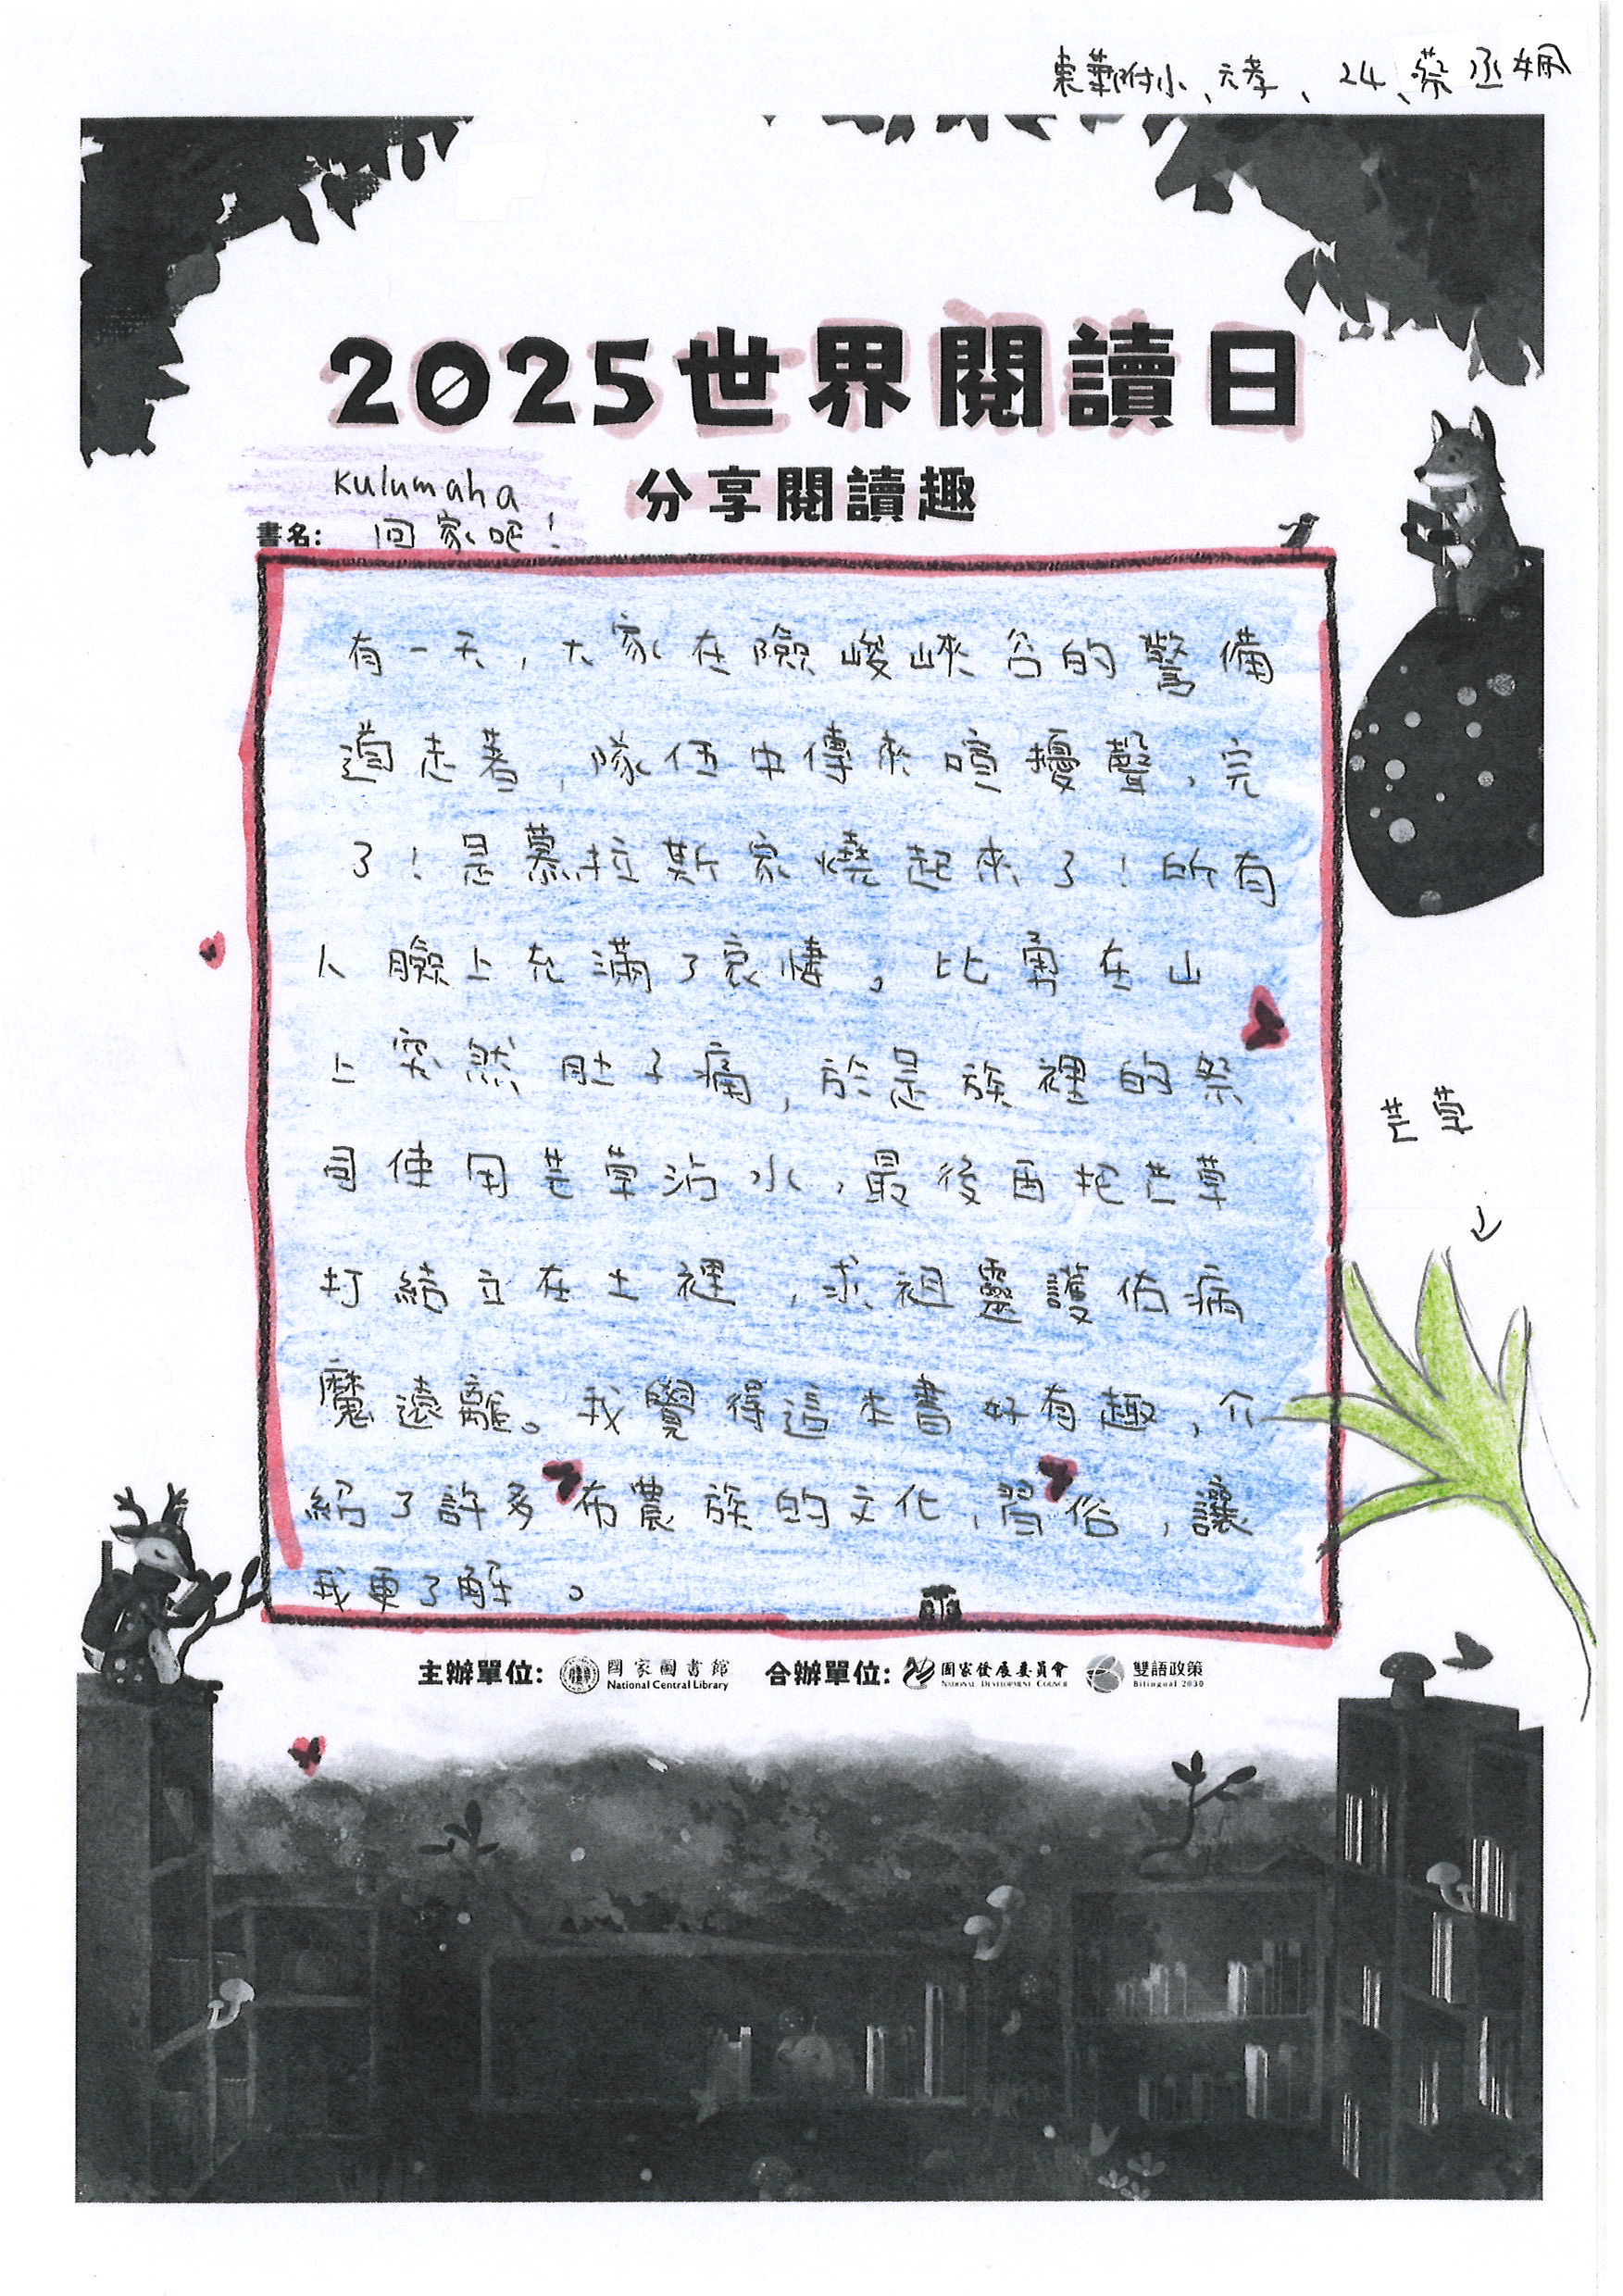 東華附小、六孝、24、蔡丞姵
2025世界閱讀日
分享閱讀趣
Kulumaha
書名: 回家吧!
有一天,大家在險峻峽谷的警備
道走著,隊伍中傳來喧擾聲,完
了!是慕拉斯家燒起來了!所有
人臉上充滿了哀悽。比勇在山
上突然肚子痛,於是族裡的祭
司使用芒草沾水,最後再把芒草
打結立在土裡,求祖靈護佑病
魔遠離。我覺得這本書好有趣,介
紹了許多布農族的文化,習俗,讓
我更了解。
芒草
↓
主辦單位: 國家圖書館 National Central Library 合辦單位: 國家發展委員會 National Development Council 雙語政策 Bilingual 2030